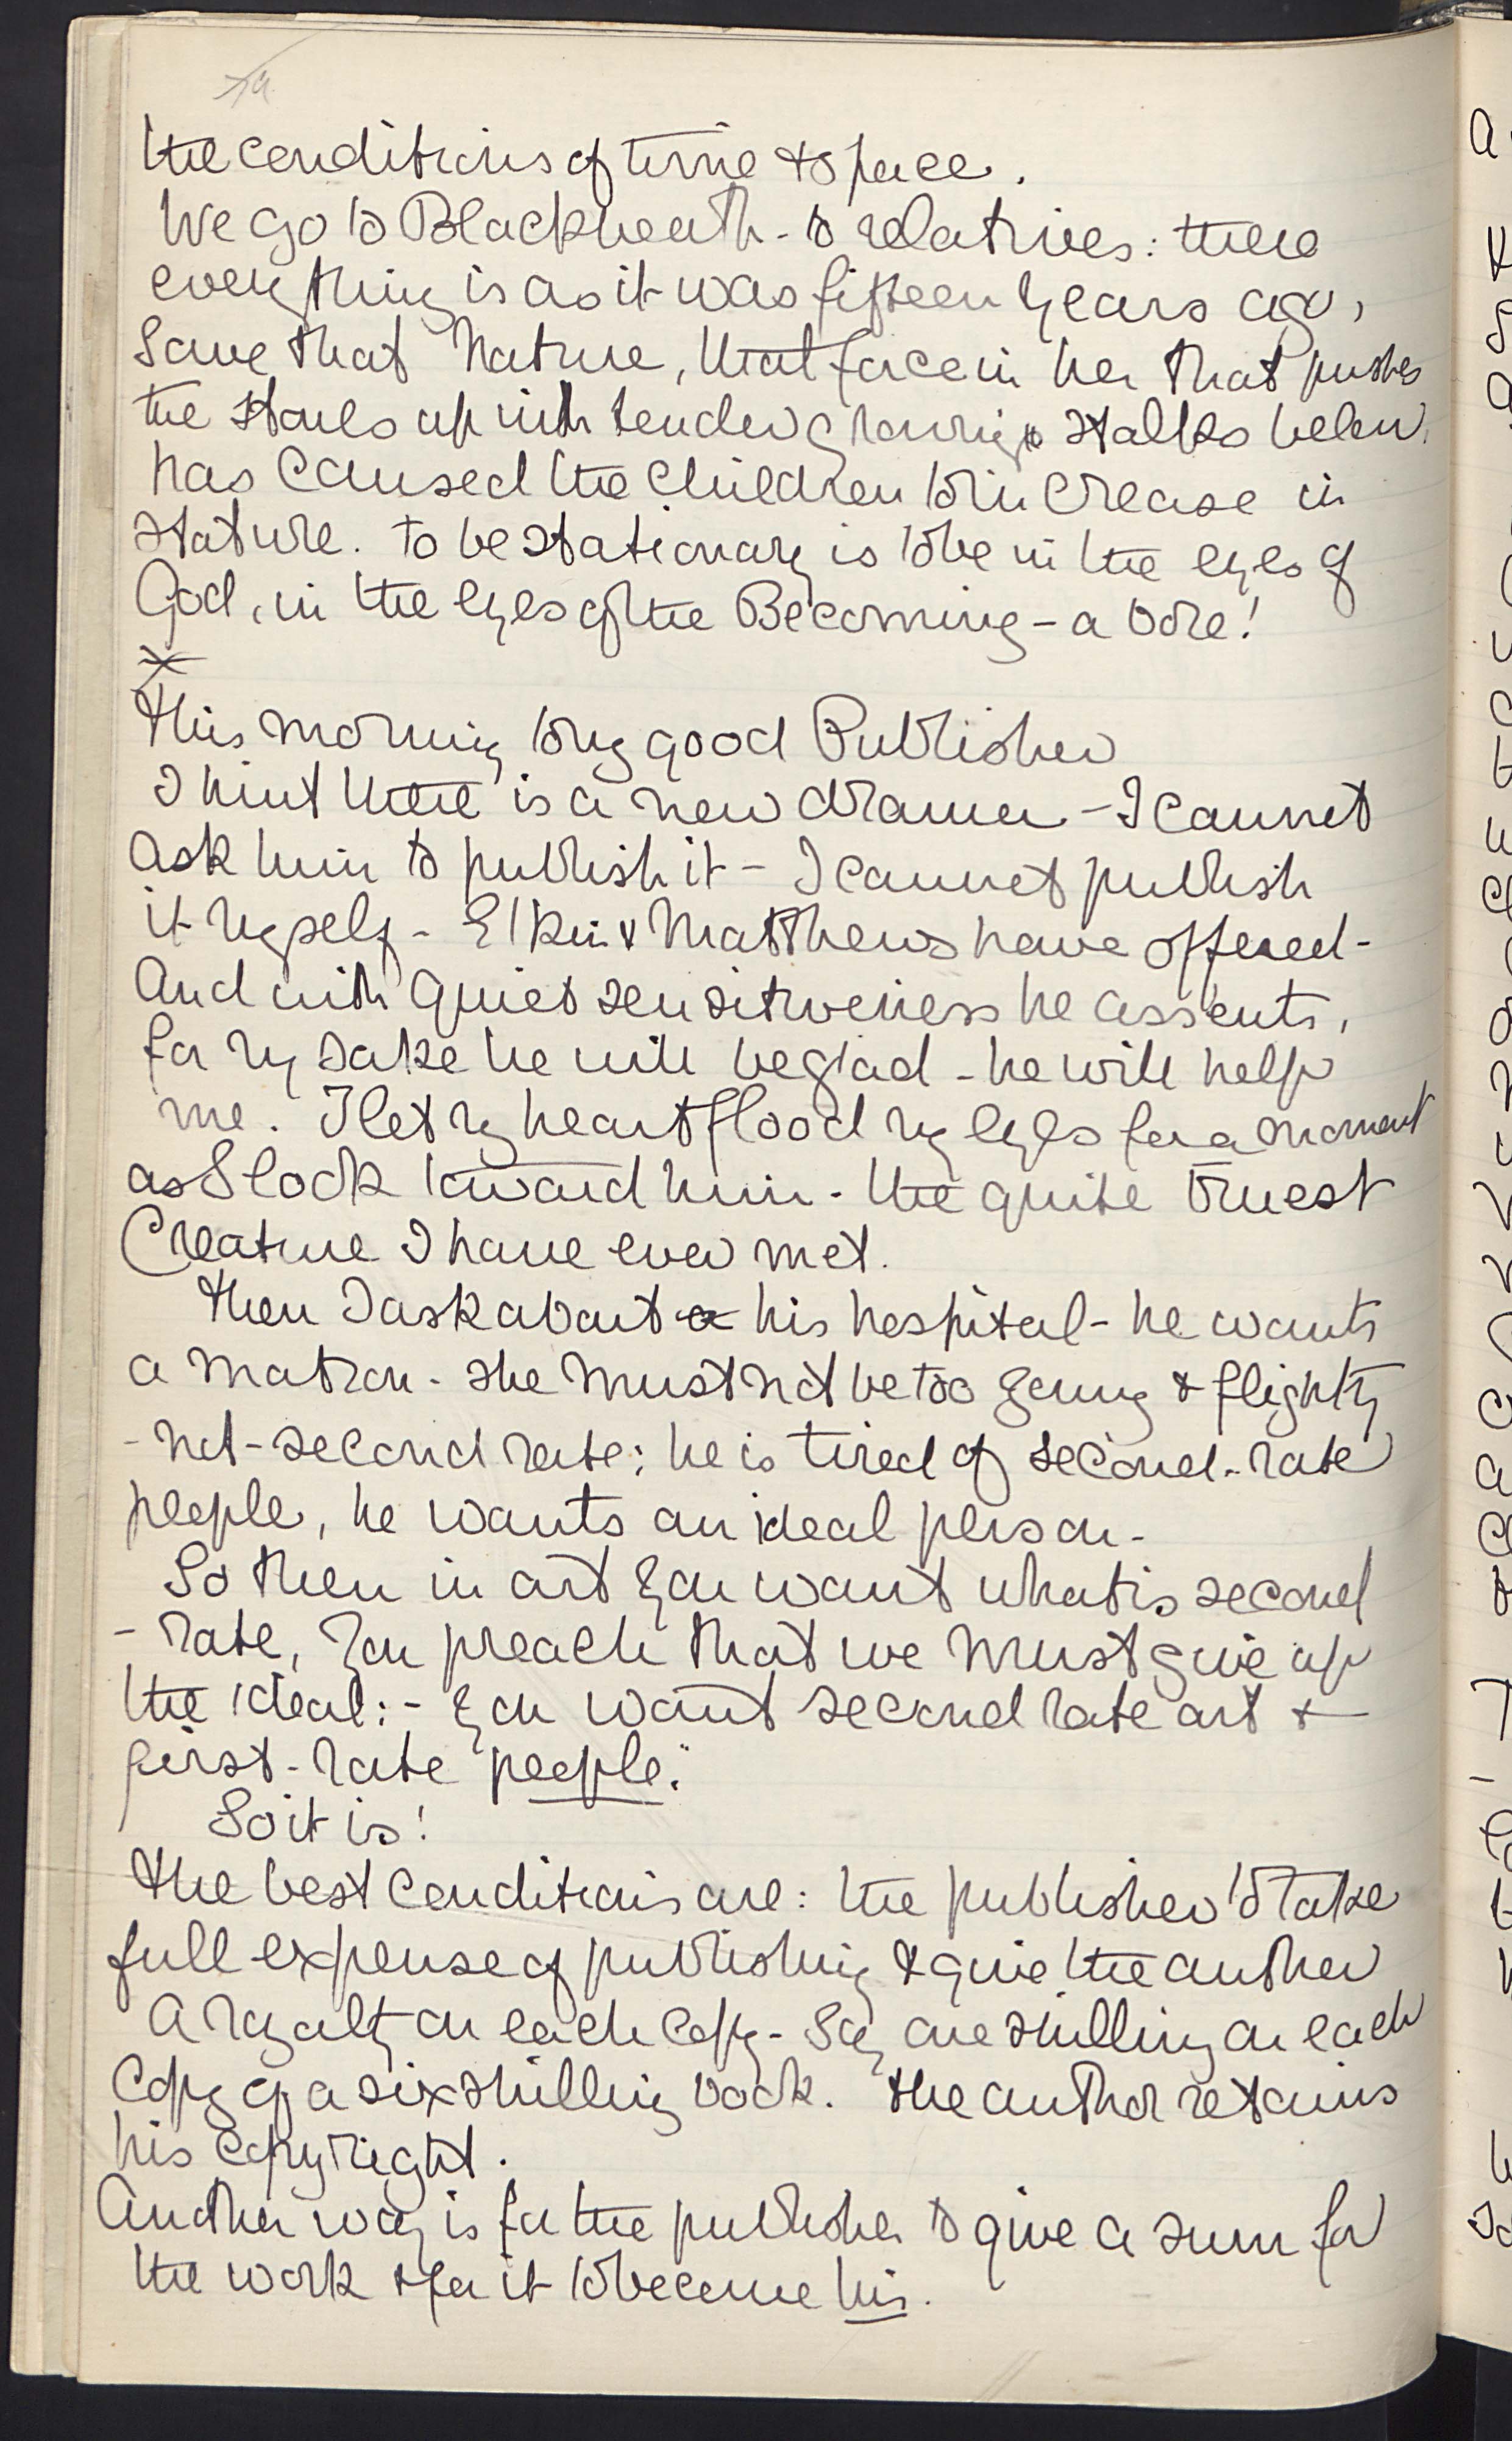 the conditions of time & space.
We go to Blackheath - to relatives: there
everything is as it was fifteen years ago,
save that Nature, that force in her that pushes
the stars up with tender growing stalks below,
has caused the children to increase in
stature. To be stationary is to be in the eyes of
God, in the eyes of the Becoming - a bore!
x
This morning to my good Publisher
I hint there is a new drama - I cannot
ask him to publish it - I cannot publish
it myself - Elkin & Matthews have offered -
And with quiet sensitiveness he assents,
for my sake he will be glad - he will help
me. I let my heart flood my eyes for a moment
as I look toward him - the quite truest
Creature I have ever met.
Then I ask about a his hospital - he wants
a Matron - she must not be too young & flighty
- not - second rate; he is tired of second-rate
people, he wants an ideal person -
So then in art you want what is second
- rate, you preach that we must give up
the ideal: - you want second rate art &
first-rate people."
So it is!
The best conditions are: the publisher to take
full expense of publishing & give the author
a royalty on each copy - say one shilling on each
copy of a six shilling book. The author retains
his copyright.
Another way is for the publisher to give a sum for
the work & for it to become his.